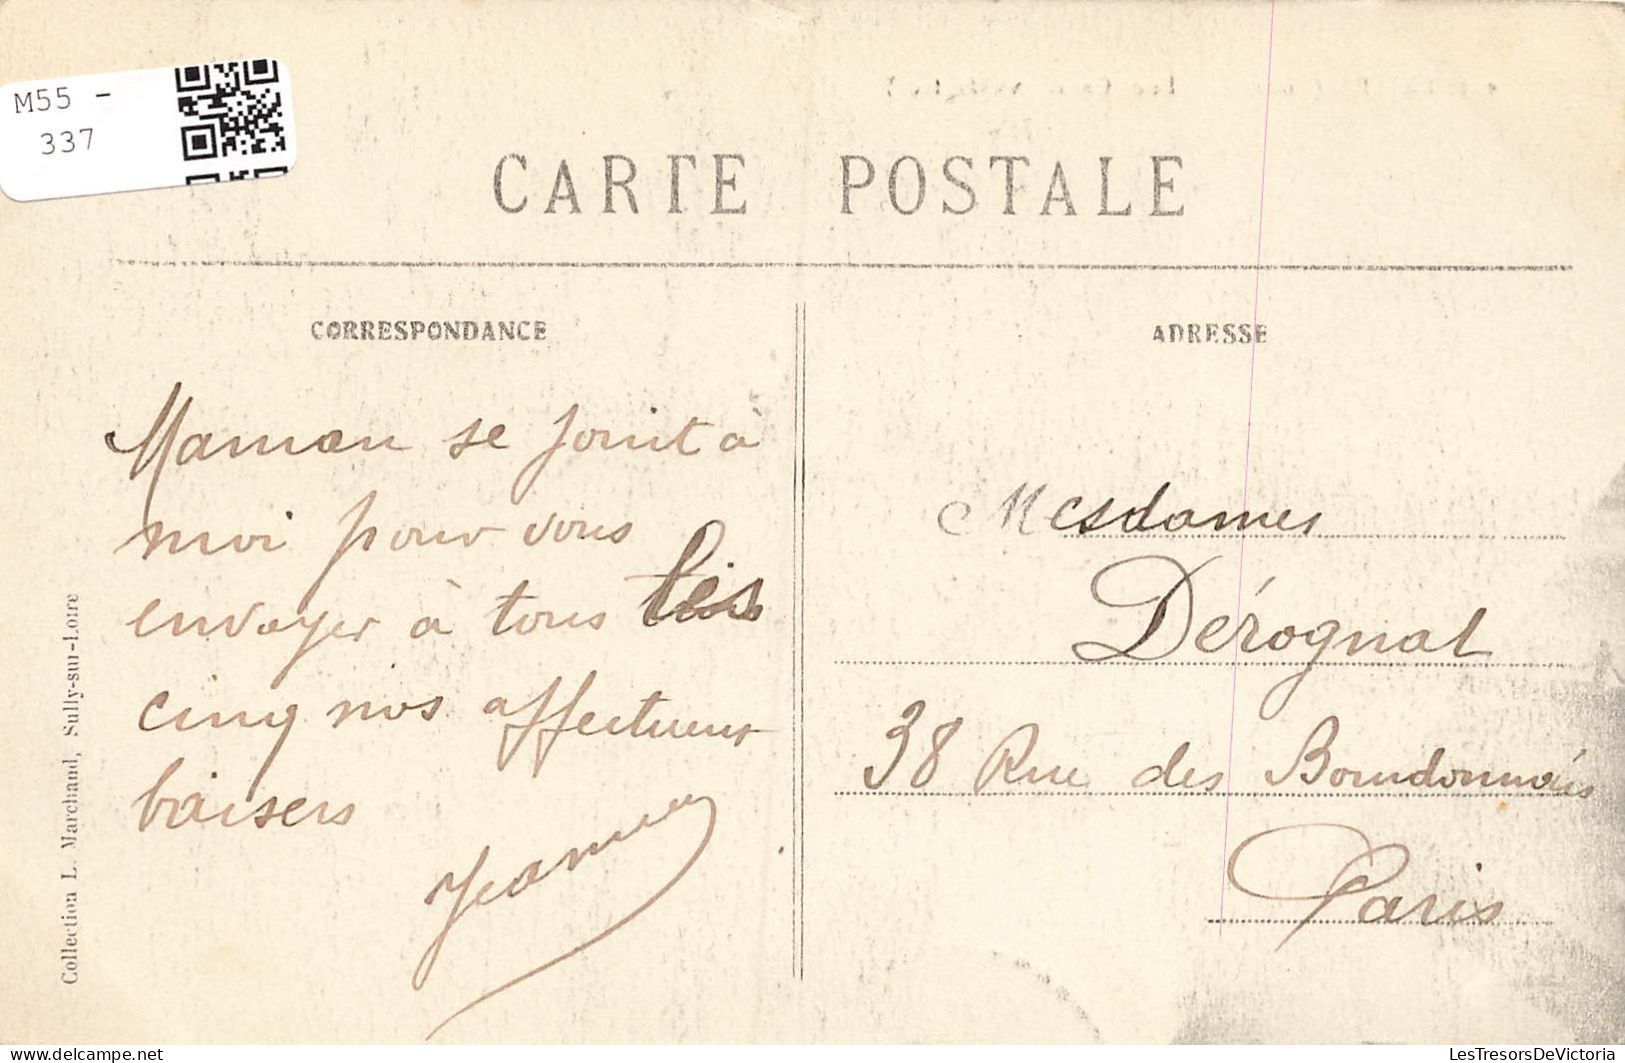 M55 -
337
CARTE POSTALE
CORRESPONDANCE
Maman se joint à
moi pour vous
envoyer à tous les
cinq nos affectueux
baisers
Jeanne
ADRESSE
Mesdames
Dérognat
38 Rue des Bourdonnais
Paris
Collection L. Marchand, Sully-sur-Loire
delcampe.net
LesTresorsDeVictoria